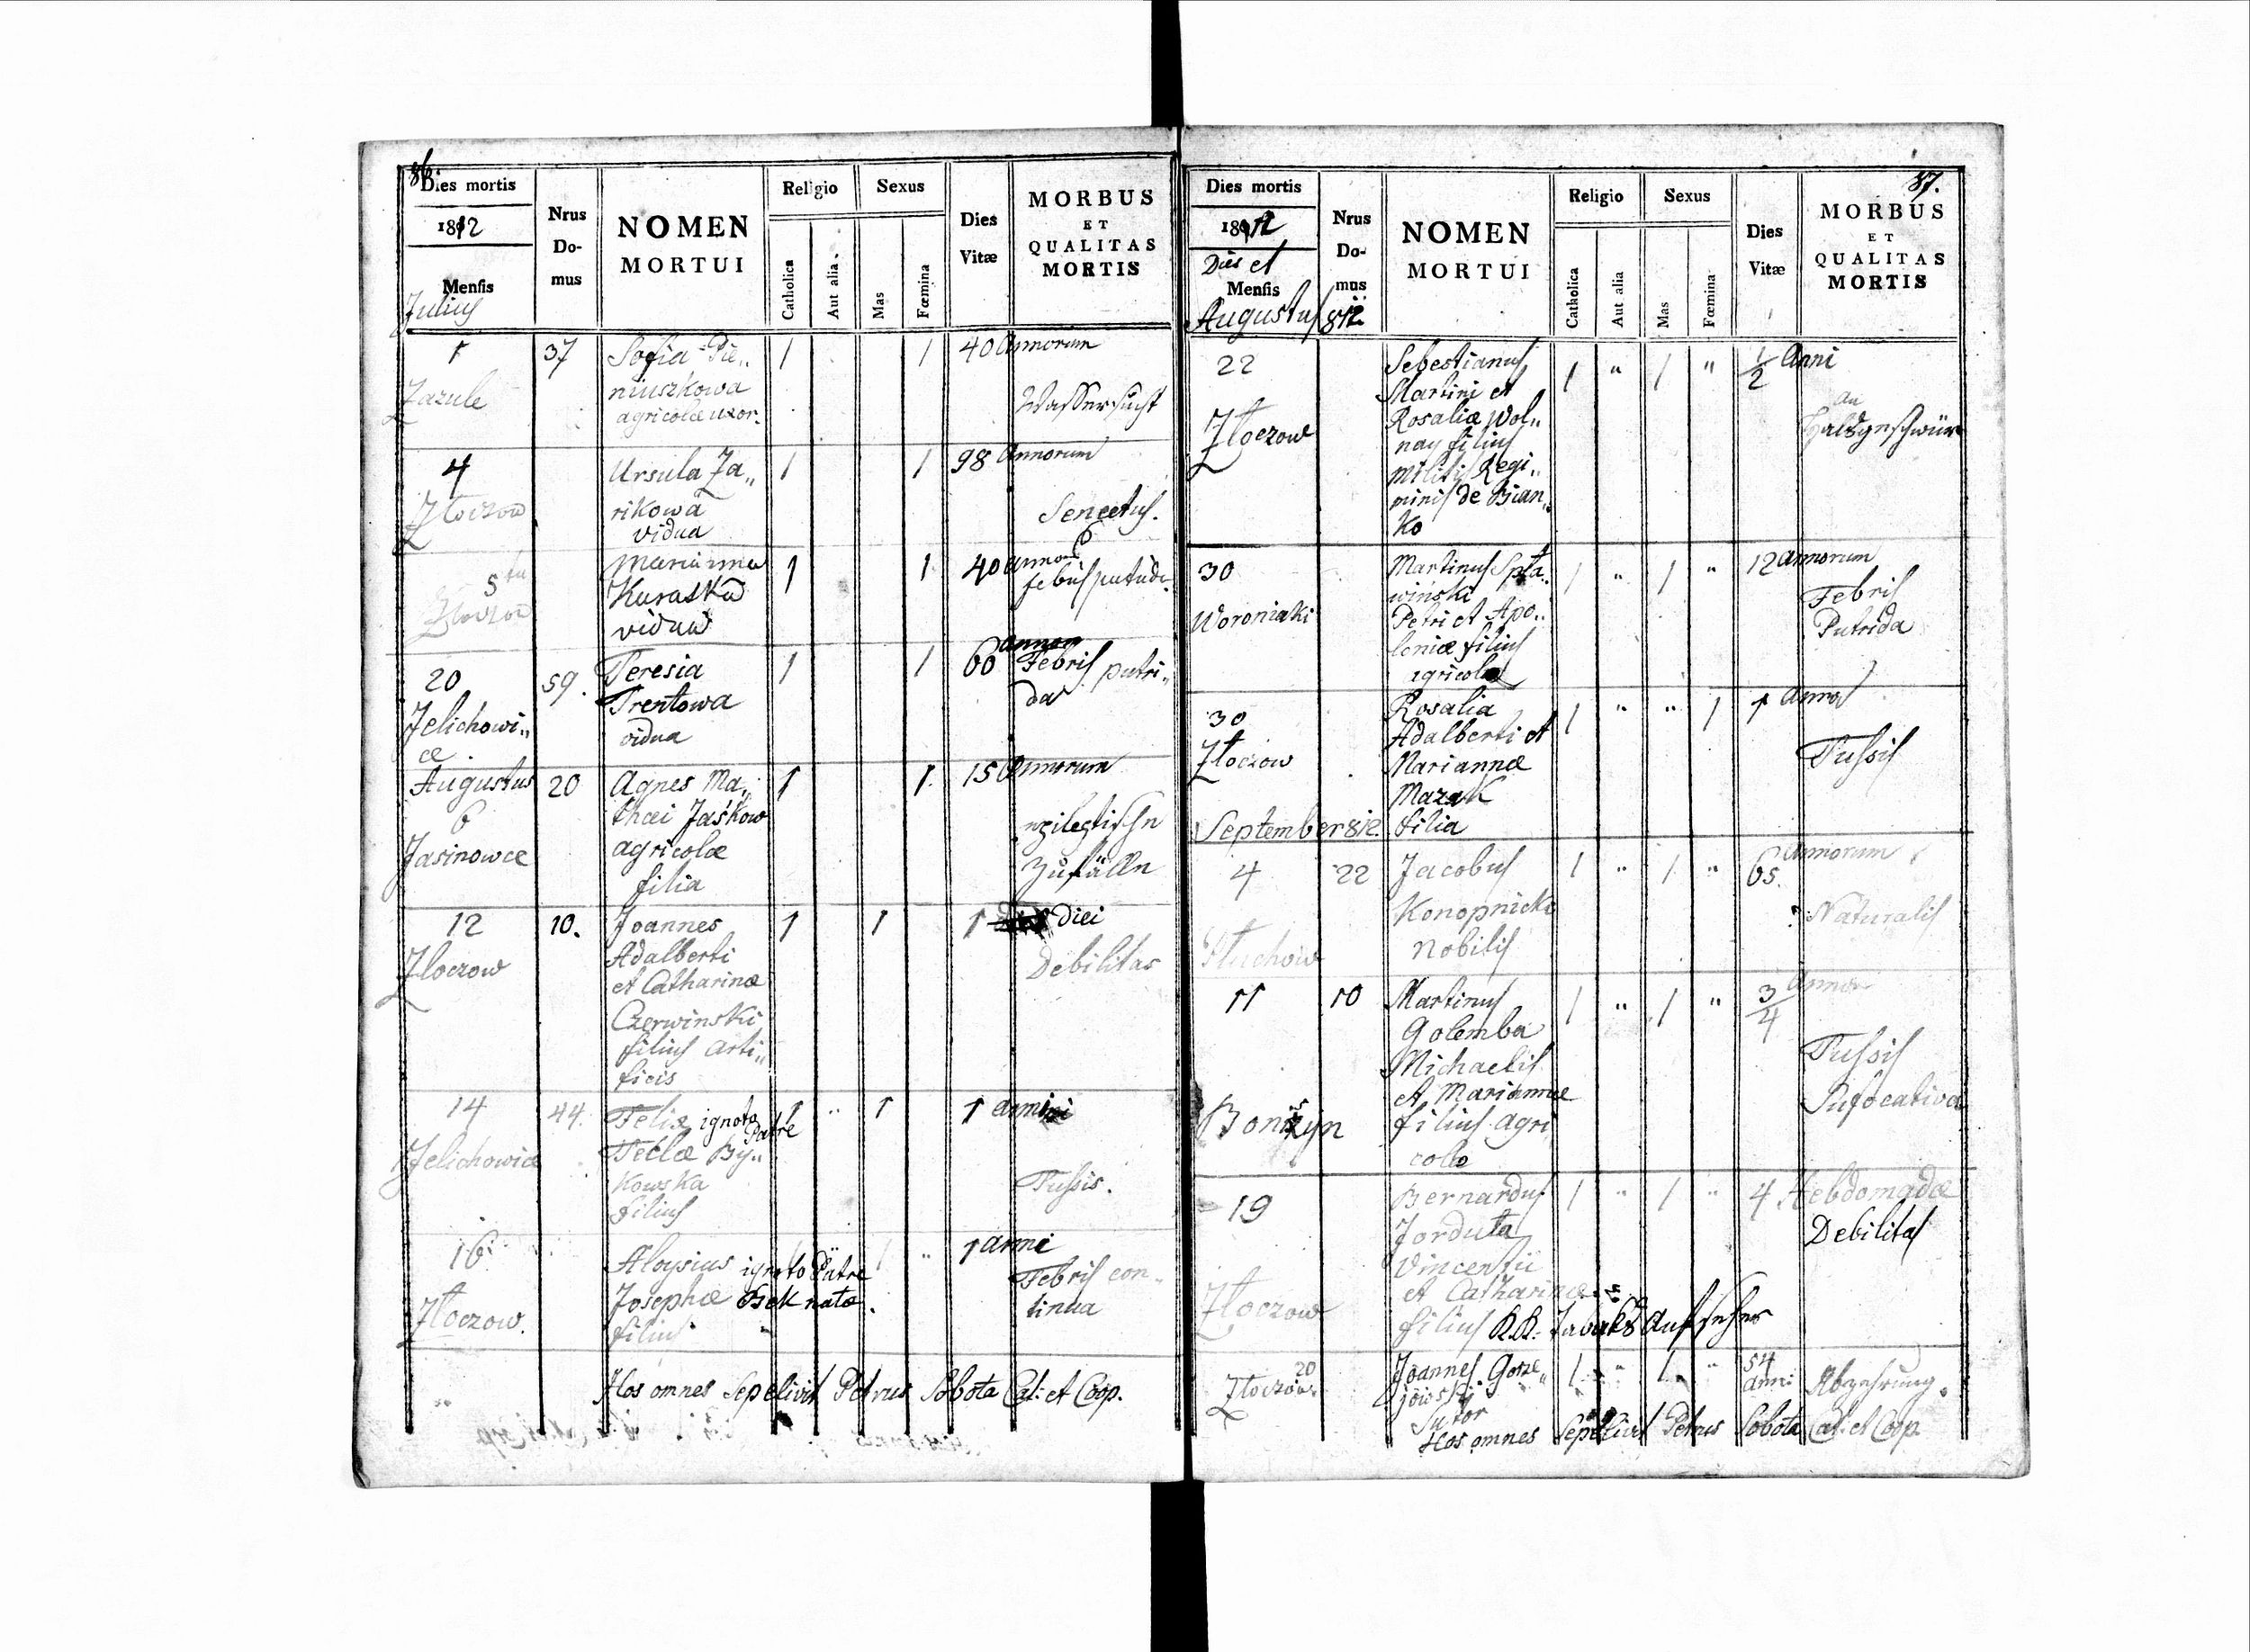 86.
Dies mortis
1812
Mensis
Julius
Nrus Do-mus
NOMEN
MORTUI
Religio
Catholica
Aut alia.
Sexus
Mas
Fœmina
Dies
Vitæ
MORBUS
ET
QUALITAS
MORTIS
1 37 Sofia Pie„ 1 1 40 Annorum
Zazule niuszkowa Wassersucht
agricolæ uxor.
4 Ursula Za„ 1 1 98 Annorum
Złoczow rikowa Senectus.
vidua
5 Marianna 1 1 40
Kuraska
vidua
20 59. Teresia 1 1 60 Febris putri„
Jelichowi„ Trentowa da
ce vidua
Augustus 20 Agnes Ma„ 1 1 15 Annorum
6 thæi Jaśkow
Jasinowce agricolæ Zufälle
filia
12 10. Joannes 1 1 1 Diei
Złoczow Adalberti Debilitas
et Catharinæ
Czerwinski
filius arti„
ficis
14 44. Felix ignoto Patre 1 „ 1 1 anni
Jelichowice Teclæ By„
kowska Tussis.
filius
16 Aloysius ignoto Patre 1 „ 1 anni
Złoczow. Josephæ Bek natæ. Febris con„
filius tinua
Hos omnes Sepelivit Petrus Sobota Cat: et Coop.
87.
Dies mortis
1812
Dies et
Mensis
Augustus 812.
Nrus
Do-
mus
NOMEN
MORTUI
Religio
Catholica
Aut alia
Sexus
Mas
Fœmina
Dies
Vitæ
MORBUS
ET
QUALITAS
MORTIS
22 Sebestianus 1 „ 1 „ 1/2 Anni
Martini et an
Złoczow Rosaliæ Wol„ Halsgeschwür
nay filius
militis Regi„
minis de Bian„
ko
30 Martinus Spła„ 1 „ 1 „ 12 Annorum
Woroniaki wiński Febris
Petri et Apo„ Putrida
loniæ filius
agricolæ
30 Rosalia 1 „ „ 1 1
Złoczow Adalberti et
Mariannæ Tussis
Mazak
September 812. filia
4 22 Jacobus 1 „ 1 „ 65. Annorum
Konopnicki Naturalis
Nobilis
11 10 Martinus 1 „ 1 „ 3/4
Golemba
Michaelis Tussis
et Mariannæ Sufocativa
Boniszyn filius agri
colæ
19 Bernardus 1 „ 1 „ 4. Hebdomadæ
Jorduta Debilitas
Vincentii
et Catharinæ
Złoczow filius K.K. Tabaks Aufseher
20 Joannes Gorze„ 1 „ 1 „ 54 anni Abzehrung.
Złoczow jowski
Sutor
Hos omnes Sepelivit Petrus Sobota Cat: et Coop.